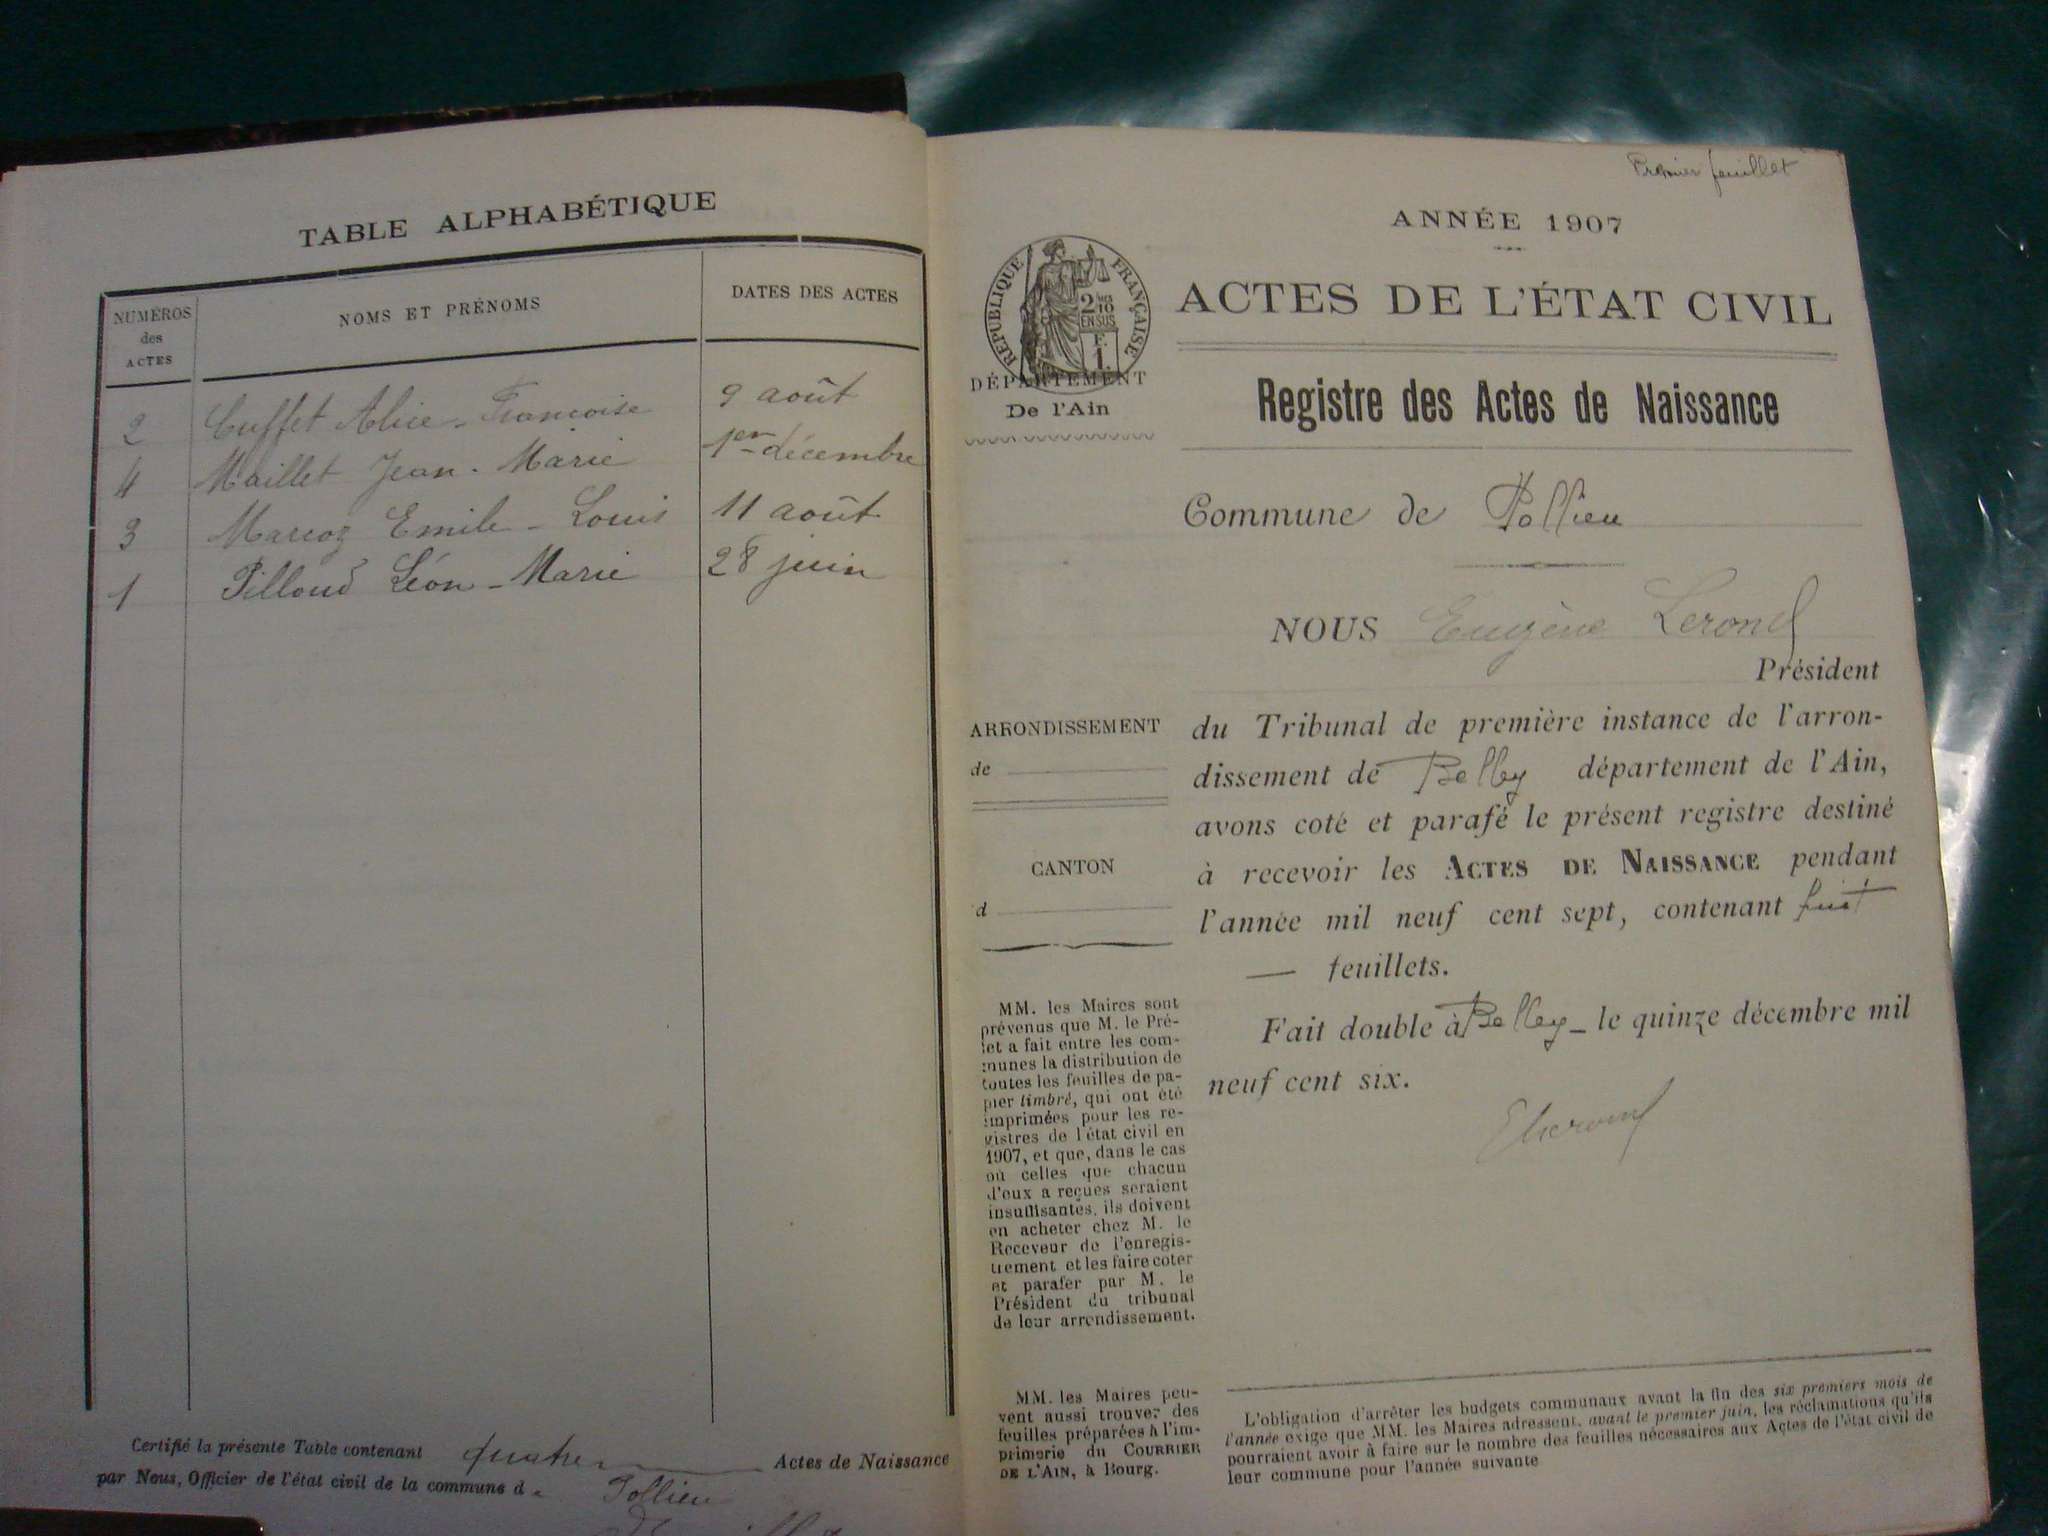 TABLE ALPHABÉTIQUE
NUMÉROS
des
ACTES
NOMS ET PRÉNOMS
DATES DES ACTES
2 Cuffet Alice - Françoise 9 août
4 Maillet Jean - Marie 1er décembre
3 Marcoz Emile - Louis 11 août
1 Pilloud Léon - Marie 28 juin
Certifié la présente Table contenant quatre Actes de Naissance
par Nous, Officier de l'état civil de la commune de Pollieu
Premier feuillet
ANNÉE 1907
RÉPUBLIQUE FRANÇAISE
2 10mes
EN SUS
F.
1
ACTES DE L'ÉTAT CIVIL
DÉPARTEMENT
De l'Ain
Registre des Actes de Naissance
Commune de Pollieu
NOUS Eugène
Président
ARRONDISSEMENT
de
CANTON
d
du Tribunal de première instance de l'arron-
dissement de Belley département de l'Ain,
avons coté et parafé le présent registre destiné
à recevoir les ACTES DE NAISSANCE pendant
l'année mil neuf cent sept, contenant huit
— feuillets.
Fait double à Belley - le quinze décembre mil
neuf cent six.
MM. les Maires sont
prévenus que M. le Pré-
fet a fait entre les com-
munes la distribution de
toutes les feuilles de pa-
pier timbré, qui ont été
imprimées pour les re-
gistres de l'état civil en
1907, et que, dans le cas
où celles que chacun
d'eux a reçues seraient
insuffisantes, ils doivent
en acheter chez M. le
Receveur de l'enregis-
trement et les faire coter
et parafer par M. le
Président du tribunal
de leur arrondissement.
MM. les Maires peu-
vent aussi trouver des
feuilles préparées à l'im-
primerie du COURRIER
DE L'AIN, à Bourg.
L'obligation d'arrêter les budgets communaux avant la fin des six premiers mois de
l'année exige que MM. les Maires adressent, avant le premier juin, les réclamations qu'ils
pourraient avoir à faire sur le nombre des feuilles nécessaires aux Actes de l'état civil de
leur commune pour l'année suivante